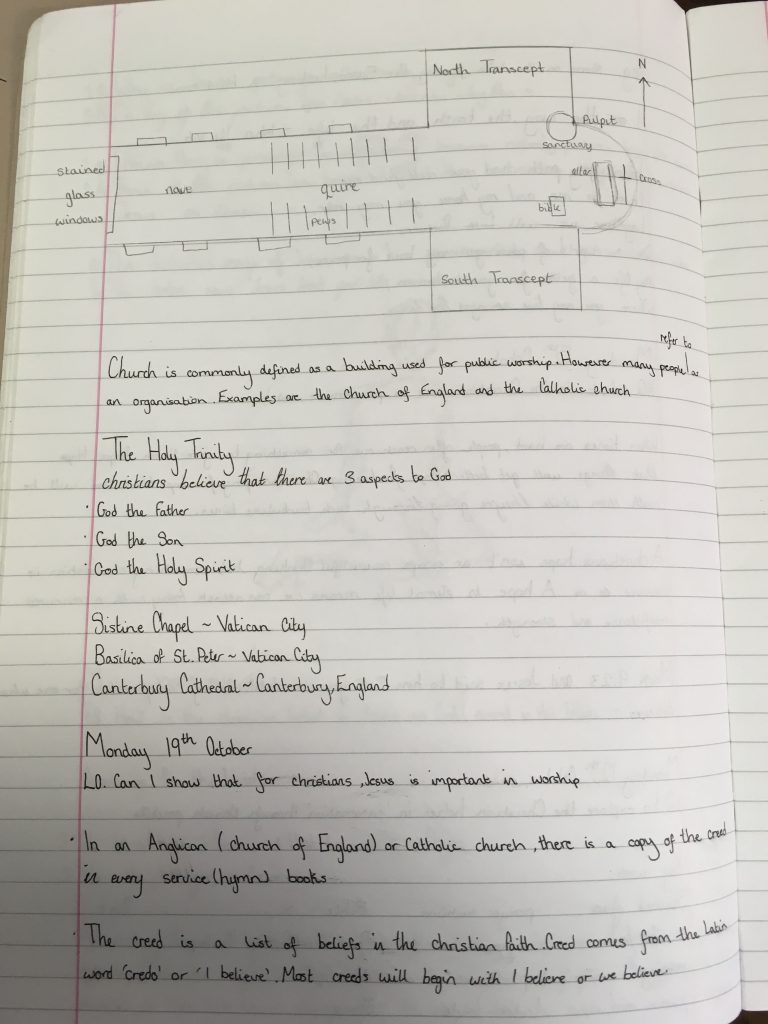 North Transcept
N
Pulpit
sanctuary
stained
glass
windows
nave
quire
altar
cross
pews
bible
South Transcept
refer to
Church is commonly defined as a building used for public worship. However many people as
an organisation. Examples are the church of England and the Catholic church
The Holy Trinity
christians believe that there are 3 aspects to God
· God the Father
· God the Son
· God the Holy Spirit
Sistine Chapel ~ Vatican City
Basilica of St. Peter ~ Vatican City
Canterbury Cathedral ~ Canterbury, England
Monday 19th October
LO. Can I show that for christians, Jesus is important in worship
· In an Anglican (church of England) or Catholic church, there is a copy of the creed
in every service (hymn) books
· The creed is a list of beliefs in the christian faith. Creed comes from the Latin
word 'credo' or 'I believe'. Most creeds will begin with I believe or we believe.